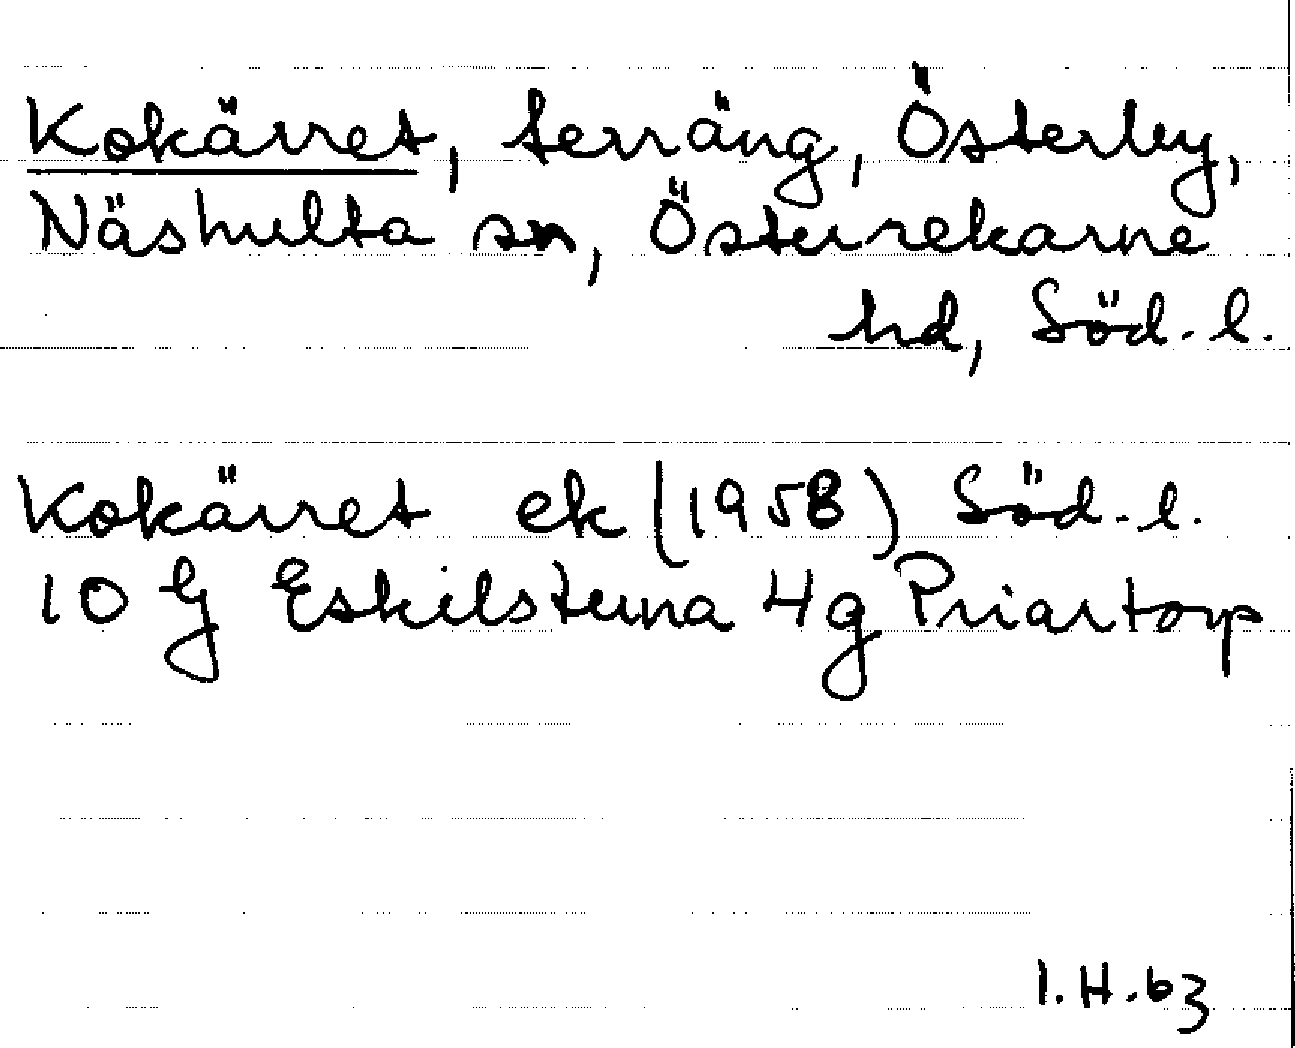 Kokärret, terräng, Österby,
Näshulta sn, Österrekarne
hd, Söd. l.
Kokärret ek (1958) Söd. l.
10 G Eskilstuna 4g Priartorp
I.H.63